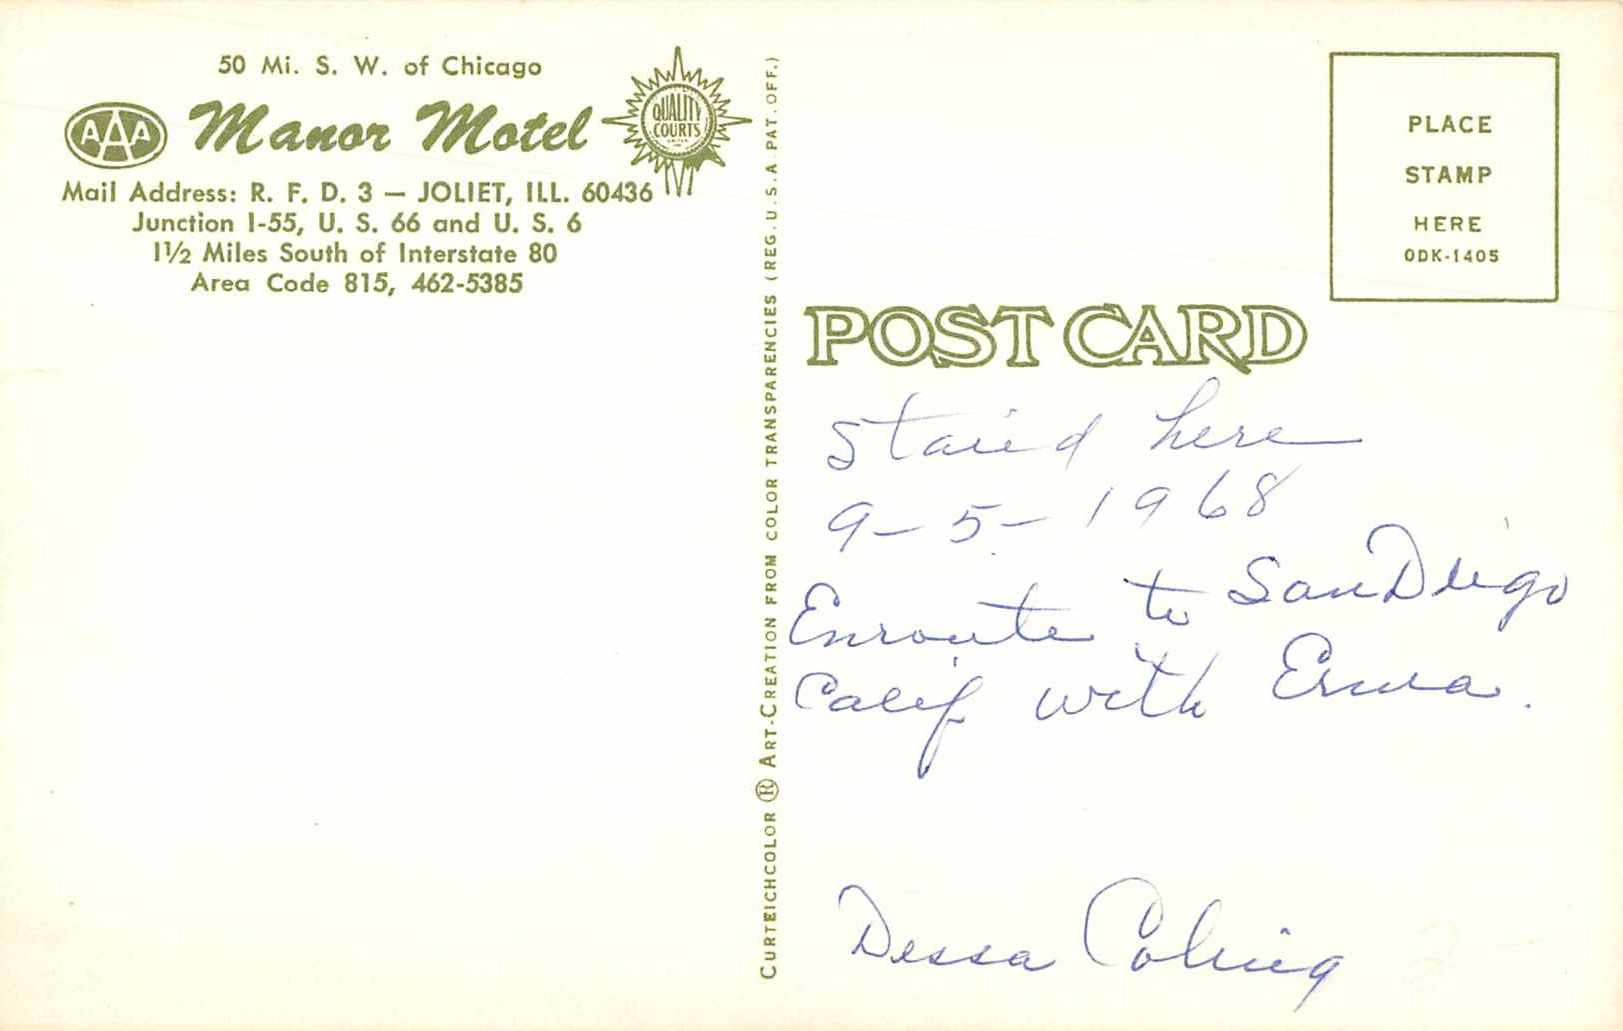 50 Mi. S. W. of Chicago
AAA Manor Motel
QUALITY
COURTS
Mail Address: R. F. D. 3 — JOLIET, ILL. 60436
Junction I-55, U. S. 66 and U. S. 6
1½ Miles South of Interstate 80
Area Code 815, 462-5385
CURTEICHCOLOR ® ART-CREATION FROM COLOR TRANSPARENCIES (REG. U.S.A. PAT. OFF.)
PLACE
STAMP
HERE
ODK-1405
POST CARD
Staied here
9-5-1968
Enroute to San Diego
Calif with Erma.
Dessa